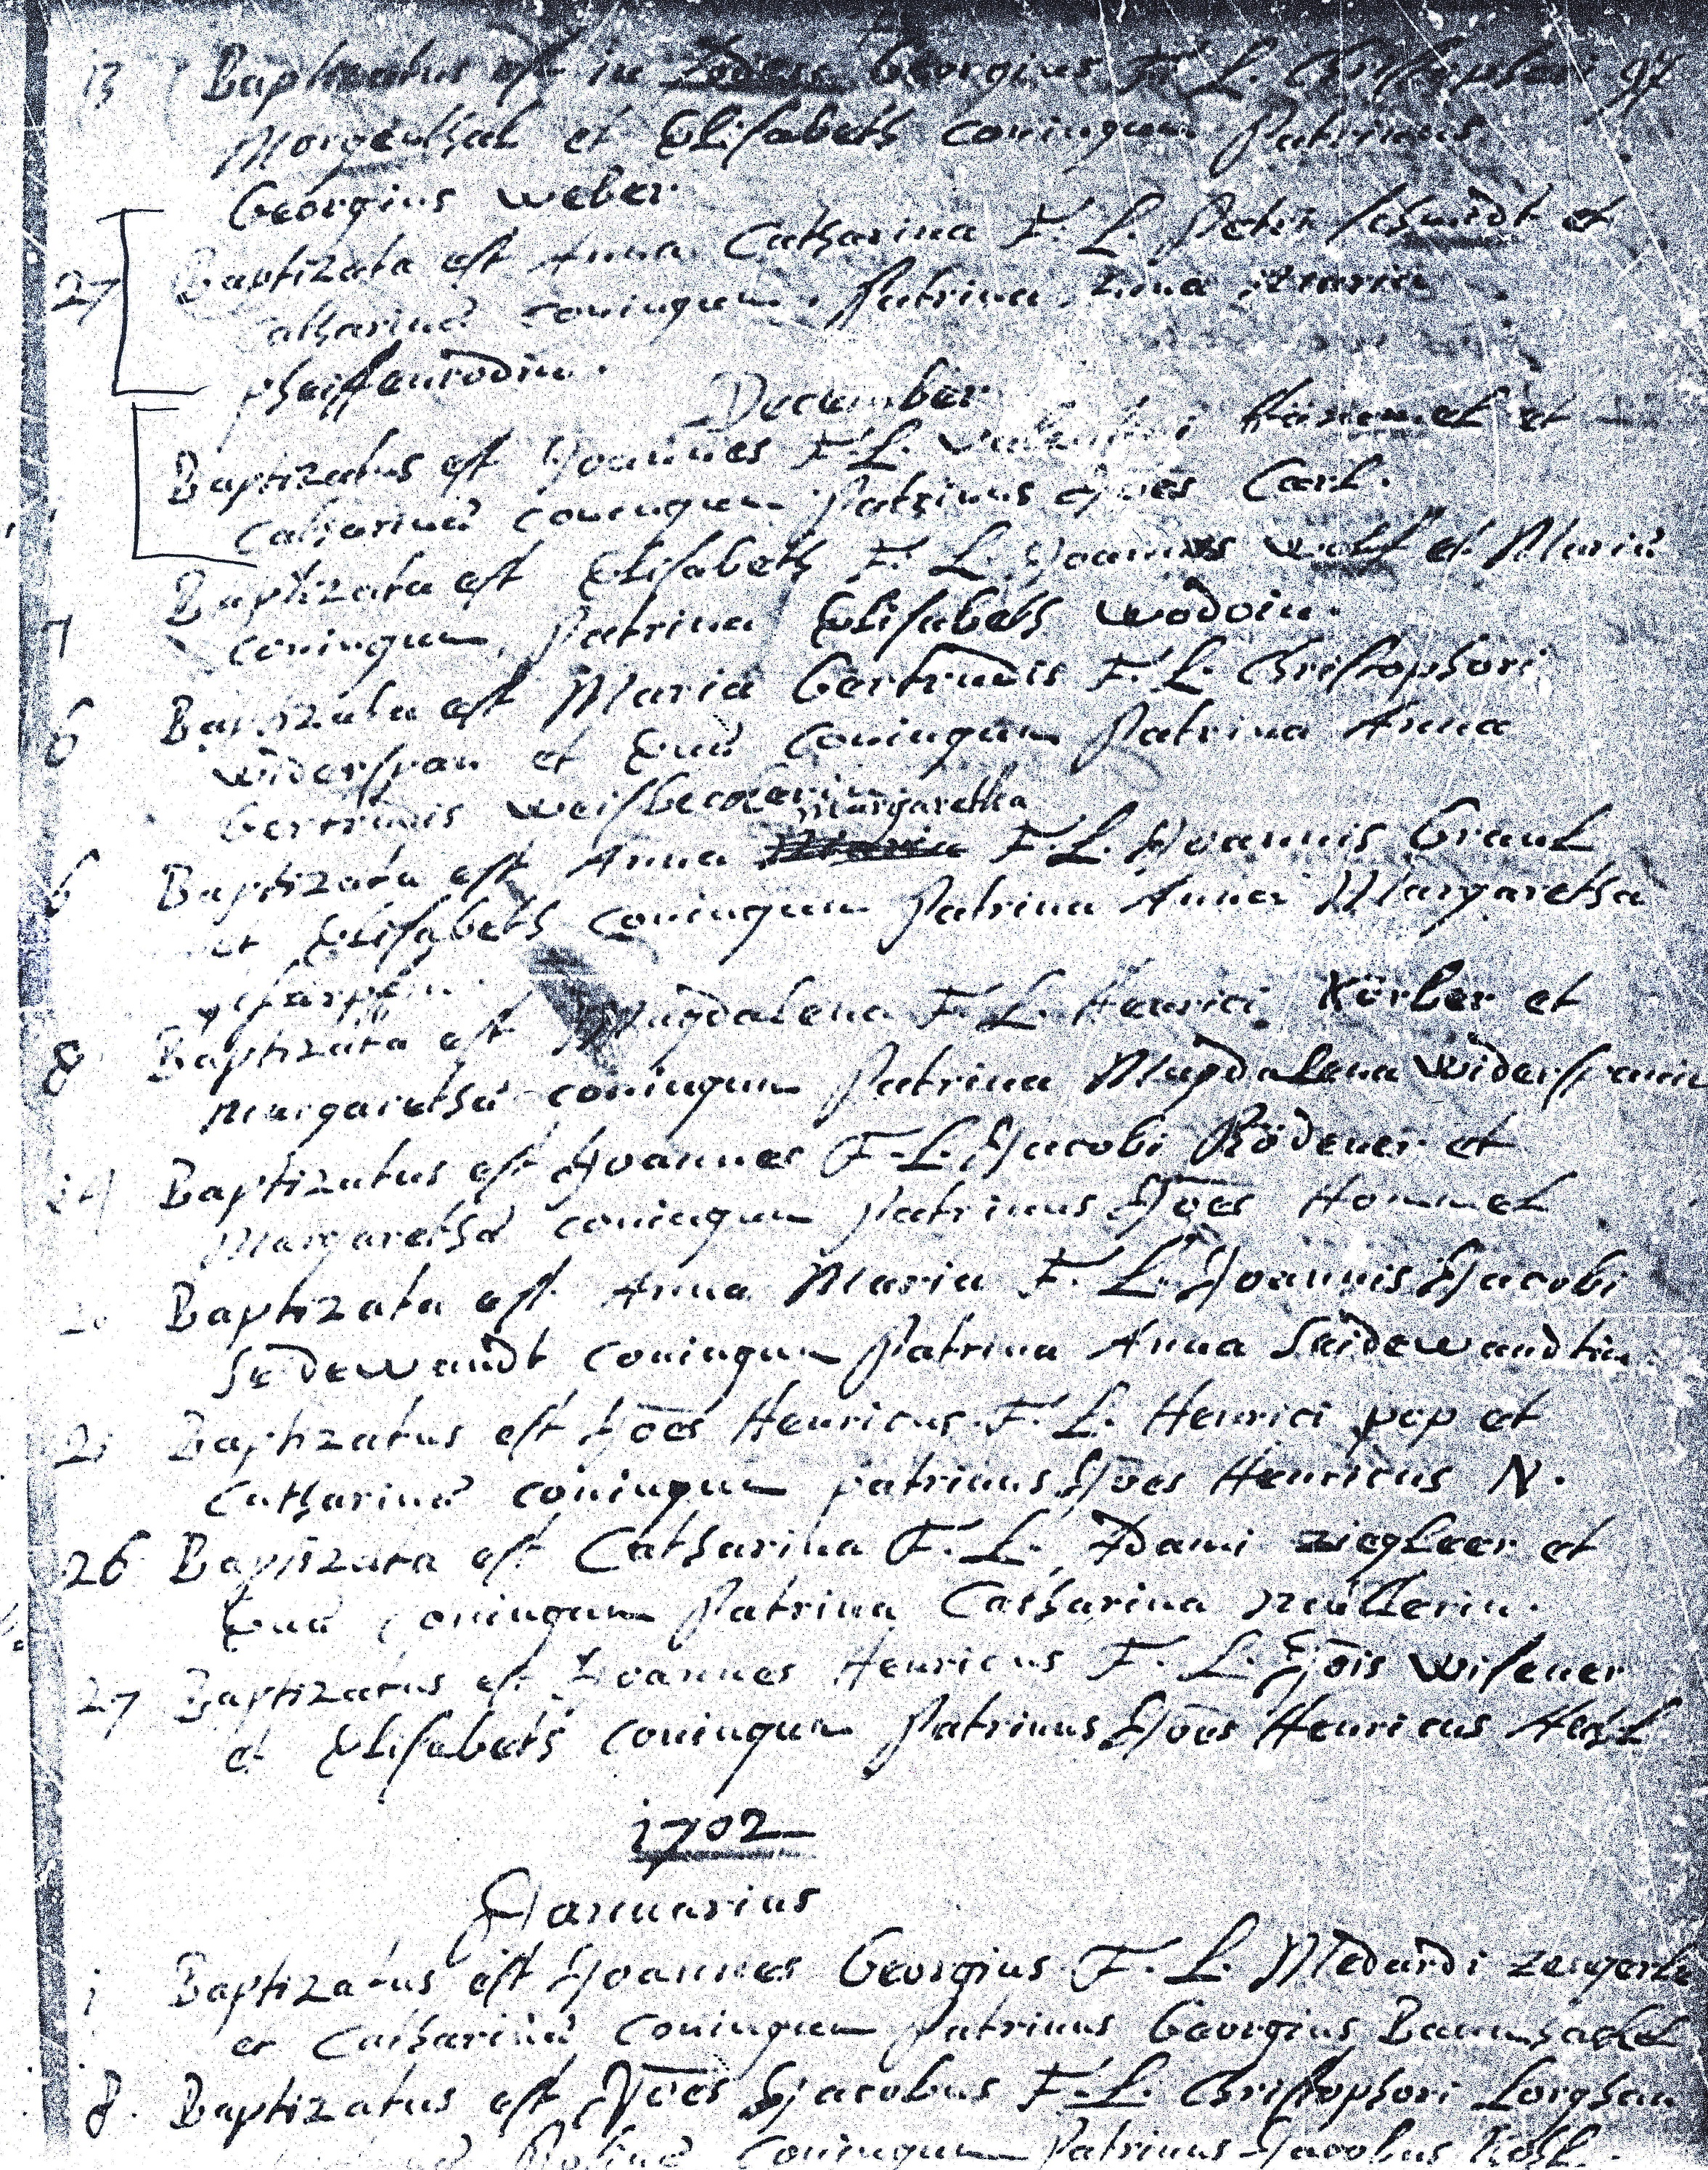 13 Baptizatus est in Georgius F. L. Christophori 97
Morgenthal et Elisabeth coniugum Patrinus
Georgius weber
27 Baptizata est Anna Catharina F. L. Petri schmidt et
Catharinâ coniugum. Patrina Anna Maria
pfeiffenrodin.
December
Baptizatus est Joannes F. L. Valentini et
Catharinâ coniugum Patrinus Joēs Carl.
7 Baptizata est Elisabeth F. L. Joannis wolf et Mariâ
coniugum, Patrina Elisabeth wodoin.
6 Baptizata est Maria Gertrudis F. L. Christophori
widerspan et Evâ coniugum Patrina Anna
Gertrudis
margaretha
6 Baptizata est Anna Maria F. L. Joannis Graul
et Elisabeth coniugum Patrina Anna Margaretha
8 Baptizata est Magdalena F. L. Henrici Körber et
margarethâ coniugum Patrina Magdalena widerspanin
Baptizatus est Joannes F. L. Jacobi Rödener et
Margarethâ coniugum Patrinus Joēs Hommel
Baptizata est Anna Maria F. L. Joannis Jacobi
Seidewandt coniugum Patrina Anna Seidewandtin.
Baptizatus est Joēs Henricus F. L. Henrici pop et
Catharinâ coniugum patrinus Joēs Henricus N.
26 Baptizata est Catharina F. L. Adami ziegleer et
Evâ coniugum Patrina Catharina müllerin.
27 Baptizatus est Joannes Henricus F. L. Jōis wisener
et Elisabeth coniugum Patrinus Joēs Henricus
1702
Januarius
1 Baptizatus est Joannes Georgius F. L. Medardi
et Catharinâ coniugum Patrinus Georgius Baumbachel
8. Baptizatus est Joēs Jacobus F. L. Christophori Lorghan
coniugum Patrinus Jacobus